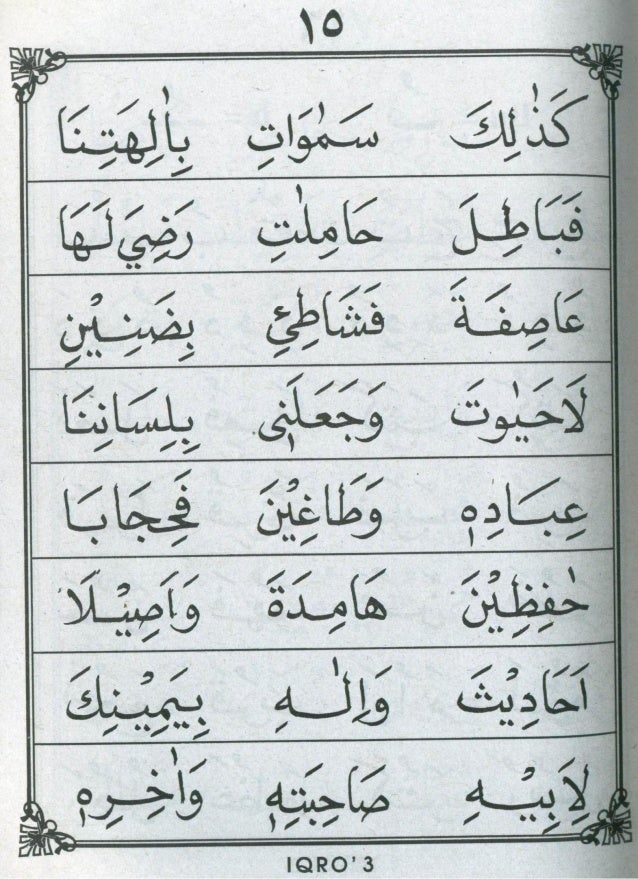 ١٥
كَذٰلِكَ سَمٰوَاتِ بِاٰلِهَتِنَا
فَبَاطِلَ حَامِلٰتِ رَضِيَ لَهَا
عَاصِفَةَ فَشَاطِئِ بِضَنِيْنِ
لَاحَيٰوتَ وَجَعَلَنٖى بِلِسَانِنَا
عِبَادِهٖ وَطَاغِيْنَ فَحِجَابَا
حٰفِظِيْنَ هَامِدَةَ وَاَصِيْلَا
اَحَادِيْثَ وَاِلٰهِ بِيَمِيْنِكَ
لِاَبِيْهِ صَاحِبَتِهٖ وَاٰخِرِهٖ
IQRO' 3